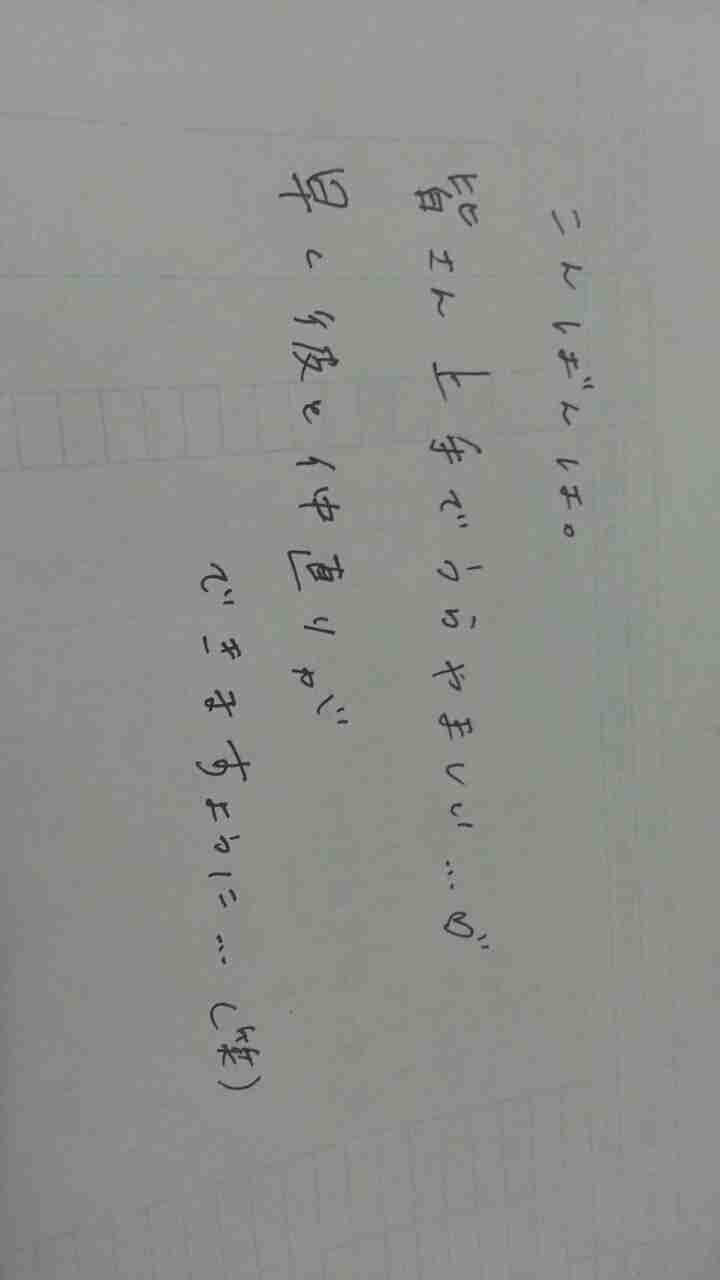 こんばんは。
皆さん上手でうらやましい…が
早く彼と仲直りが
できますように…(笑)